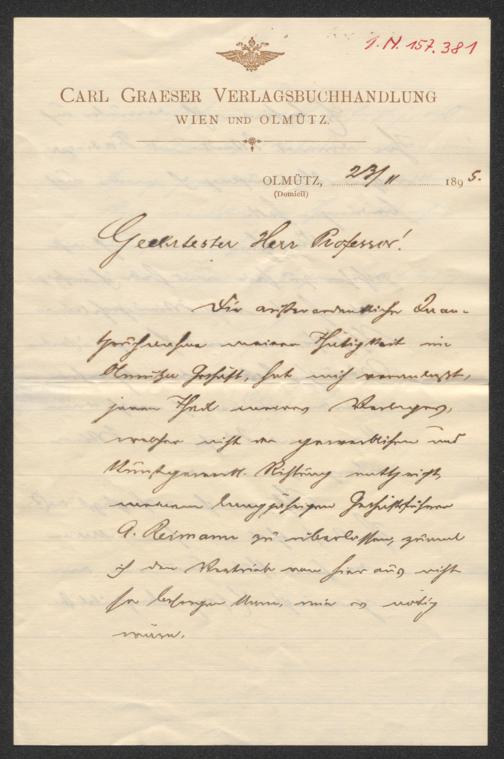 I.N. 157.381
CARL GRAESER VERLAGSBUCHHANDLUNG
WIEN UND OLMÜTZ.
OLMÜTZ, 23/11 1895.
(Domicil)
Geehrtester Herr Professor!
Die außerordentliche Inan-
spruchnahme meiner Thätigkeit im
Olmützer Geschäft, hat mich veranlaßt,
jenen Theil meines Verlages,
welcher nicht der gewerblichen und
Kunstgewerbl. Richtung entspricht,
meinem langjährigen Geschäftsführer
A. Reimann zu überlassen, zumal
ich den Vertrieb von hier aus nicht
so besorgen kann, wie es nötig
wäre.